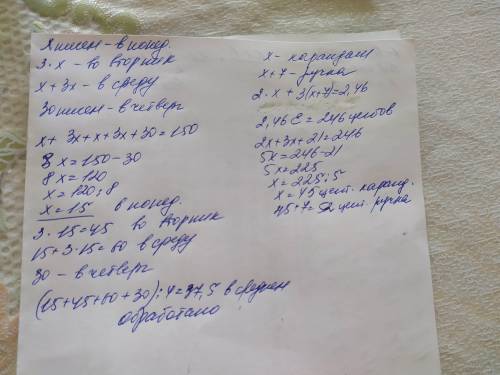 x писем - в понед.
3·x - во вторник
x + 3x - в среду
30 писем - в четверг
x + 3x + x + 3x + 30 = 150
8x = 150 - 30
8x = 120
x = 120 : 8
x = 15 в понед.
3·15 = 45 во вторник
15 + 3·15 = 60 в среду
30 - в четверг
(15 + 45 + 60 + 30) : 4 = 37,5 в среднем
обработано
x - карандаш
x + 7 - ручка
2·x + 3(x+7) = 2,46
2,46 € = 246 центов
2x + 3x + 21 = 246
5x = 246 - 21
5x = 225
x = 225 : 5
x = 45 цент. каранд.
45 + 7 = 52 цент. ручка